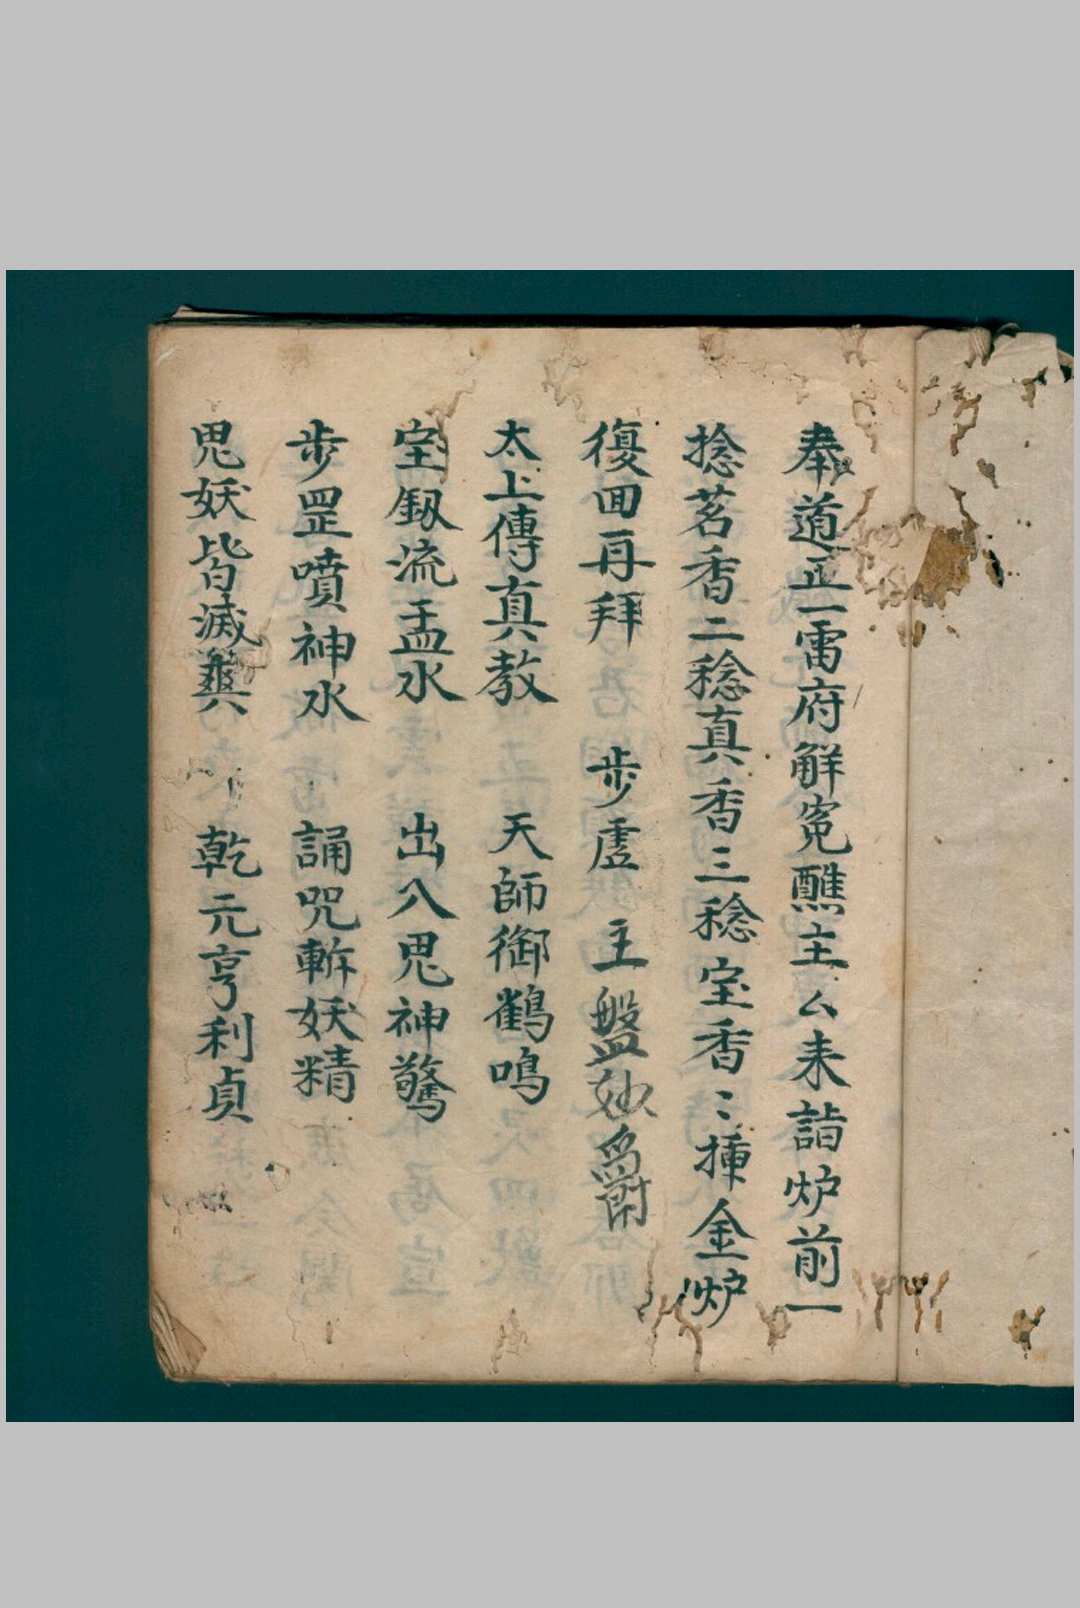 奉道正一雷府解冤醮主厶来詣炉前一
捻茗香二稔真香三稔宝香〻揷金炉
復回再拜　步虚　主盤妙爵
太上傳真教　天師御鶴鳴
宝釼流盂水　出入鬼神驚
步罡噴神水　誦咒斬妖精
鬼妖皆滅爽　乾元亨利貞